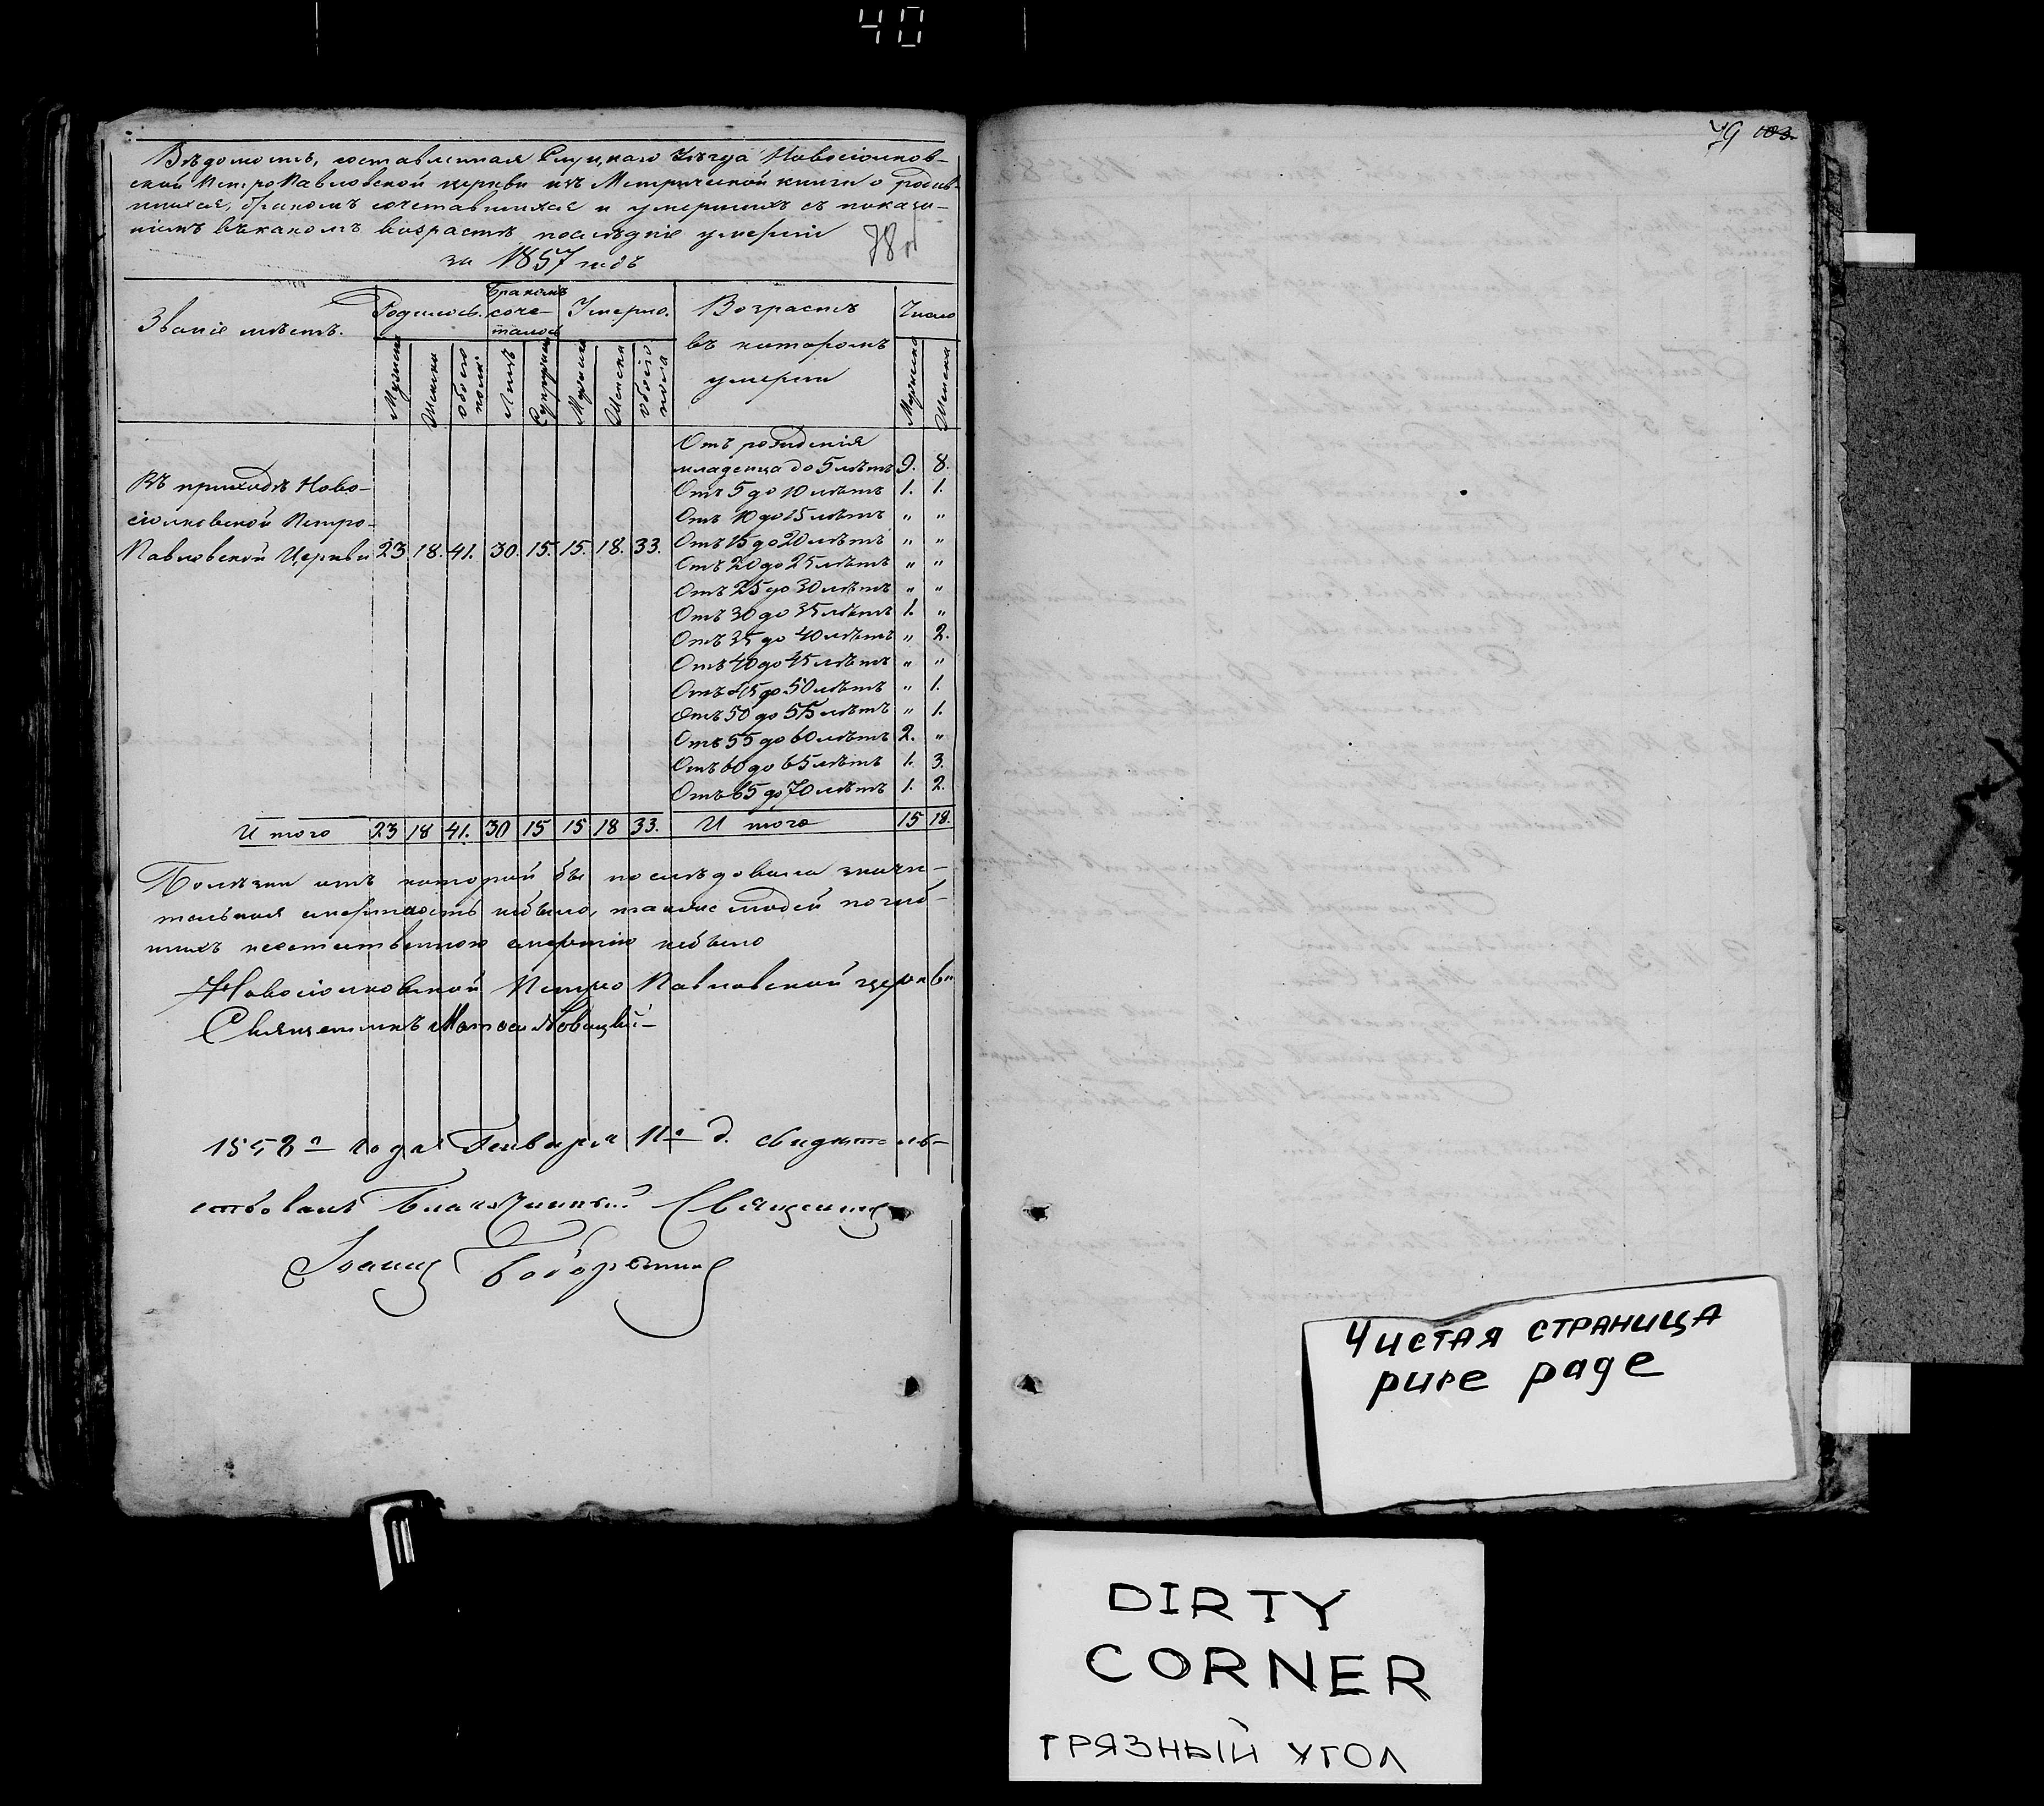 40
Вѣдомость, составленная Слуцкаго Уѣзда Новосіолков-
ской ПетроПавловской церкви изъ Метрической книги о родив-
шихся, бракомъ сочетавшихся и умершихъ съ показа-
ніемъ въ какомъ возрастѣ послѣдніе умерли
за 1857 годъ
78 об
Званіе мѣстъ.
Родилось.
Бракомъ соче-
талось
Умерло.
Возрастъ
въ которомъ
умерли
Число
Мужеска
Женска
Обоего пола
Лицъ
Супружествъ
Мужеска
Женска
Обоего пола
Мужеска
Женска
Въ приходѣ Ново-
сіолковской Петро-
Павловской Церкви 23 18. 41. 30. 15. 15. 18. 33.
Отъ рожденія
младенца до 5 лѣтъ 9. 8.
Отъ 5 до 10 лѣтъ 1. 1.
Отъ 10 до 15 лѣтъ " "
Отъ 15 до 20 лѣтъ " "
Отъ 20 до 25 лѣтъ " "
Отъ 25 до 30 лѣтъ " "
Отъ 30 до 35 лѣтъ 1. "
Отъ 35 до 40 лѣтъ " 2.
Отъ 40 до 45 лѣтъ " "
Отъ 45 до 50 лѣтъ " 1.
Отъ 50 до 55 лѣтъ " 1.
Отъ 55 до 60 лѣтъ 2. "
Отъ 60 до 65 лѣтъ 1. 3.
Отъ 65 до 70 лѣтъ 1. 2.
Итого 23 18 41. 30 15 15 18 33. Итого 15 18.
Болѣзни отъ которой бы послѣдовала значи-
тельная смертность небыло, также людей погиб-
шихъ неестественною смертію небыло
Новосіолковской Петро Павловской церкви
Священникъ Новицкій
1858го года Генваря 11го д. свидѣтель-
ствовалъ Благочинный Священникъ
Іоаннъ
79 103.
Чистая страница
pure page
DIRTY
CORNER
грязный угол